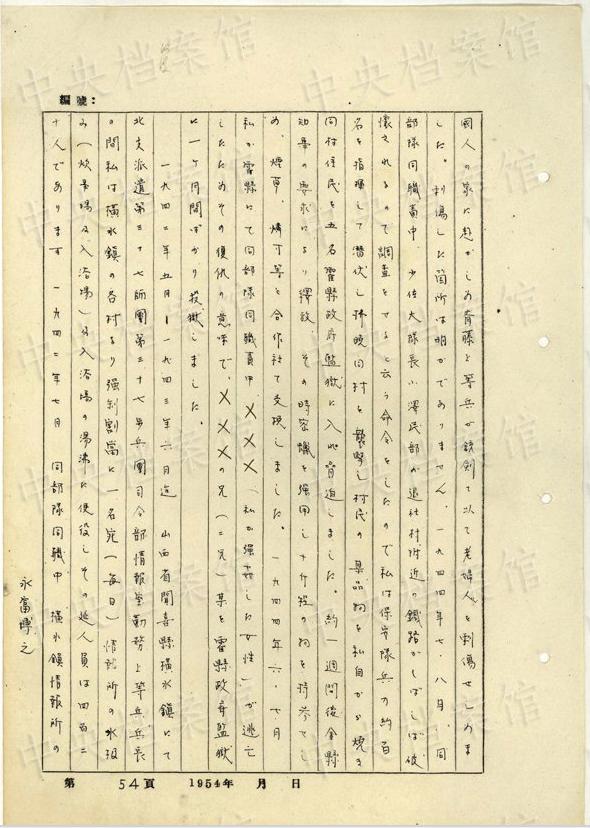 編號：
國人の家に赴かしめ斉藤上等兵が銃剣で以て老婦人を刺傷せしめま
した。刺傷した箇所は明かでありません。一九四四年七・八月、同
部隊同職責中、少佐大隊長小澤民部が退社村附近の鐵路がしばしば破
壊されるので調査をせると云う命令をしたので私は保安隊兵力約百
名を指揮して潜伏し拂曉同村を襲撃し村民の 祠を私自から焼き
同村住民を五名霍縣政府監獄に入れ脅迫しました。約一週間後全縣
知事の要求により釋放、その時密 を強 し十斤程の を持参せし
め、煙草、燐寸等と合作社で交換しました。一九四四年六・七月
私が霍縣にて同部隊同職責中、×××（私が強姦した女性）が逃亡
したためその復仇の意味で、×××の兄（二兄）某を霍縣政府監獄
に一ケ月間ばかり投獄しました。
一九四二年五月—一九四三年六月迄 山西省聞喜縣橫水鎮にて
北支派遣第三十七師團第三十七步兵團司令部情報室勤務上等兵兵長
の間私は橫水鎮の各村より强制割當に一名宛（毎日）情報所の水汲
み（炊事場及入浴場）及入浴場の湯沸に使役しその延人員は四百二
十人であります 一九四二年七月 同部隊同職中 橫水鎮情報所の
永富博之
第 54頁 1954年 月 日
中央档案馆